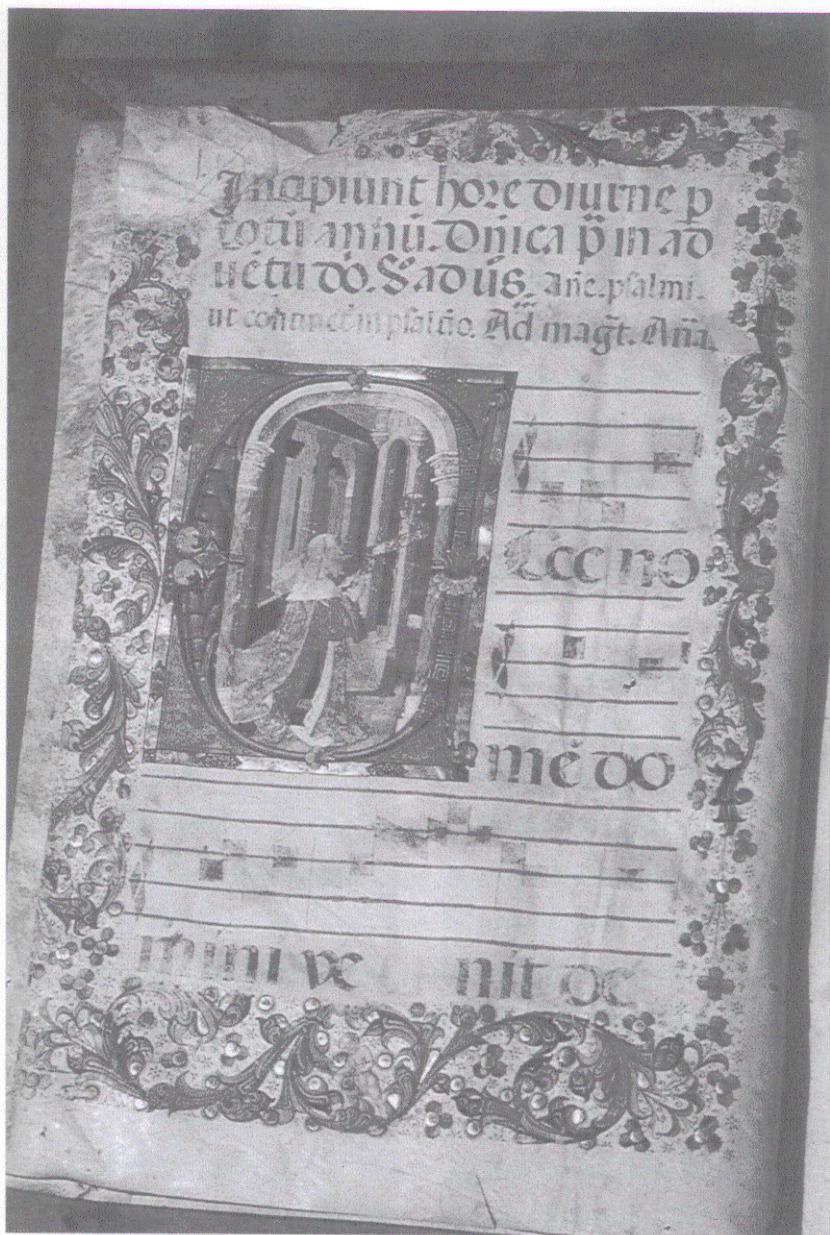 Incipiunt hore diurne p
totū annū. Dnica p̄ in ad
uētu dō. S̄ ad us̄. añe. psalmi.
ut continet in psalt̄io. Ad magt̄. Aña.
Ecce no
mē do
mini ve nit de